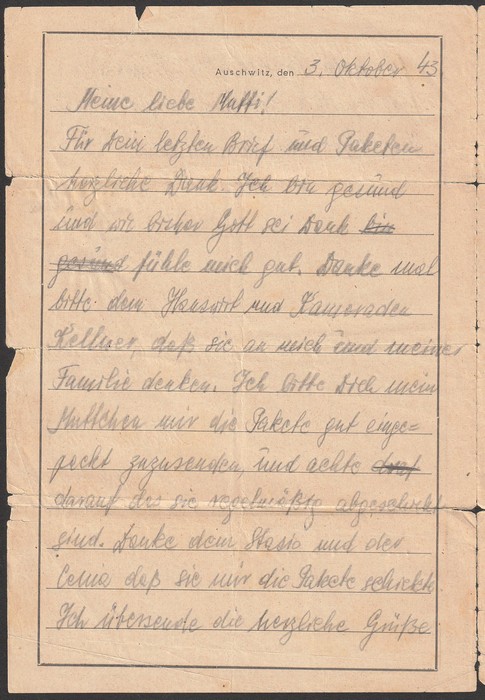 Auschwitz, den 3. Oktober 43
Meine liebe Mutti!
Für Dein letzten Brief und Paketen
herzliche Dank. Ich bin gesund
und wie bisher Gott sei Dank bin
gesund fühle mich gut. Danke mal
bitte dem Hauswirt und Kameraden
Kellner, daß sie an mich und meine
Familie denken. Ich bitte Dich mein
Muttchen mir die Pakete gut einge=
packt zuzusenden, und achte
darauf das sie regelmäßig abgeschickt
sind. Danke dem Stasio und der
Cenia daß sie mir die Pakete schickte.
Ich übersende die herzliche Grüße